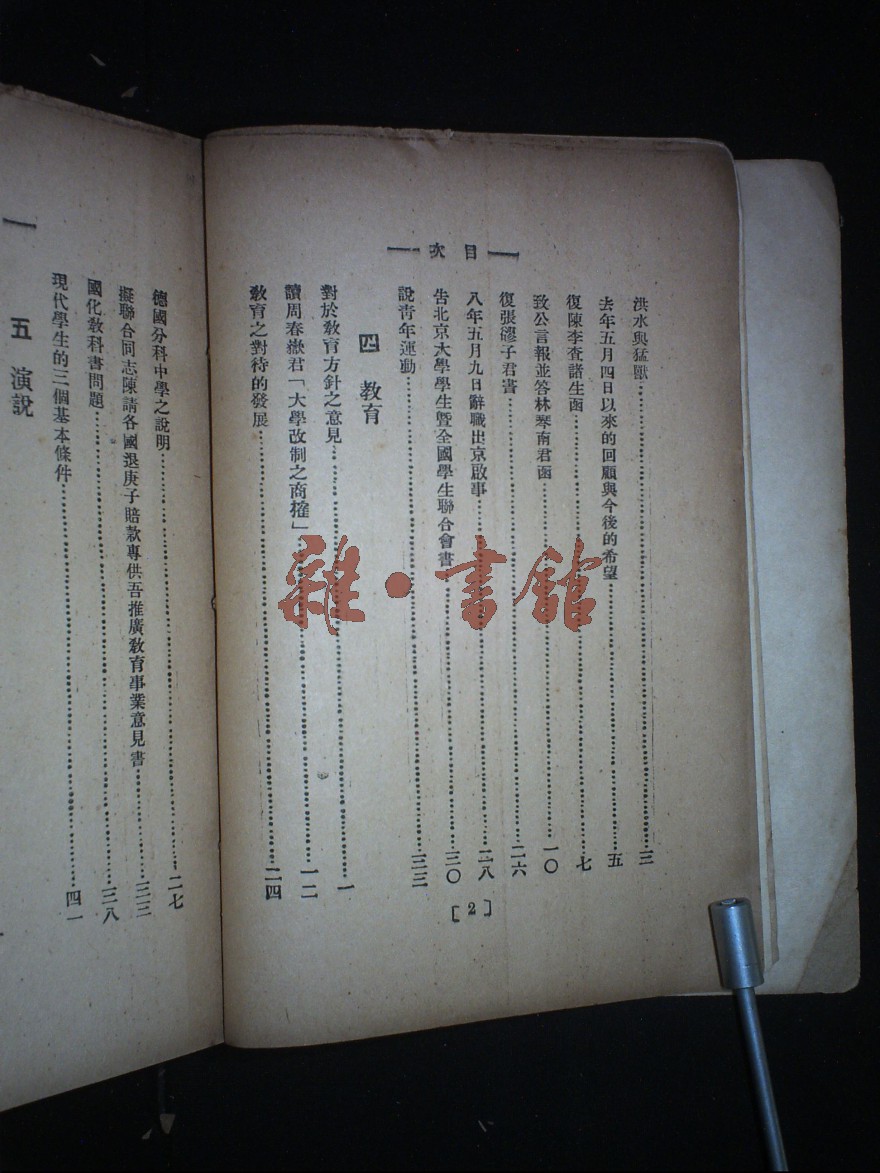 目次
洪水與猛獸……三
去年五月四日以來的回顧與今後的希望……五
復陳李查諸生函……七
致公言報並答林琴南君函……一〇
復張謬子君書……二六
八年五月九日辭職出京啟事……二八
告北京大學學生暨全國學生聯合會書……三〇
說青年運動……三三
四 教育
對於教育方針之意見……一
讀周春嶽君「大學改制之商榷」……一二
教育之對待的發展……二四
[2]
德國分科中學之說明……二七
擬聯合同志陳請各國退庚子賠款專供吾推廣教育事業意見書……三三
國化教科書問題……三八
現代學生的三個基本條件……四一
五 演說
雜·書館